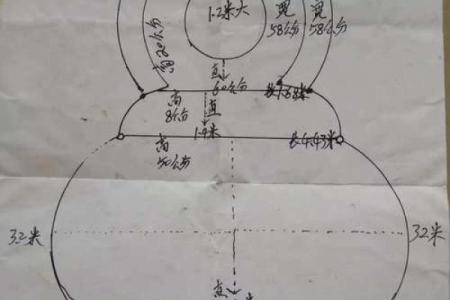 1.2米大
宽
58公分
宽
58公分
高20公分
直
60公分
长1.68米
高
8公分
直
1.9米
长4.43米
高
50公分
3.2米
3.2米
直
米